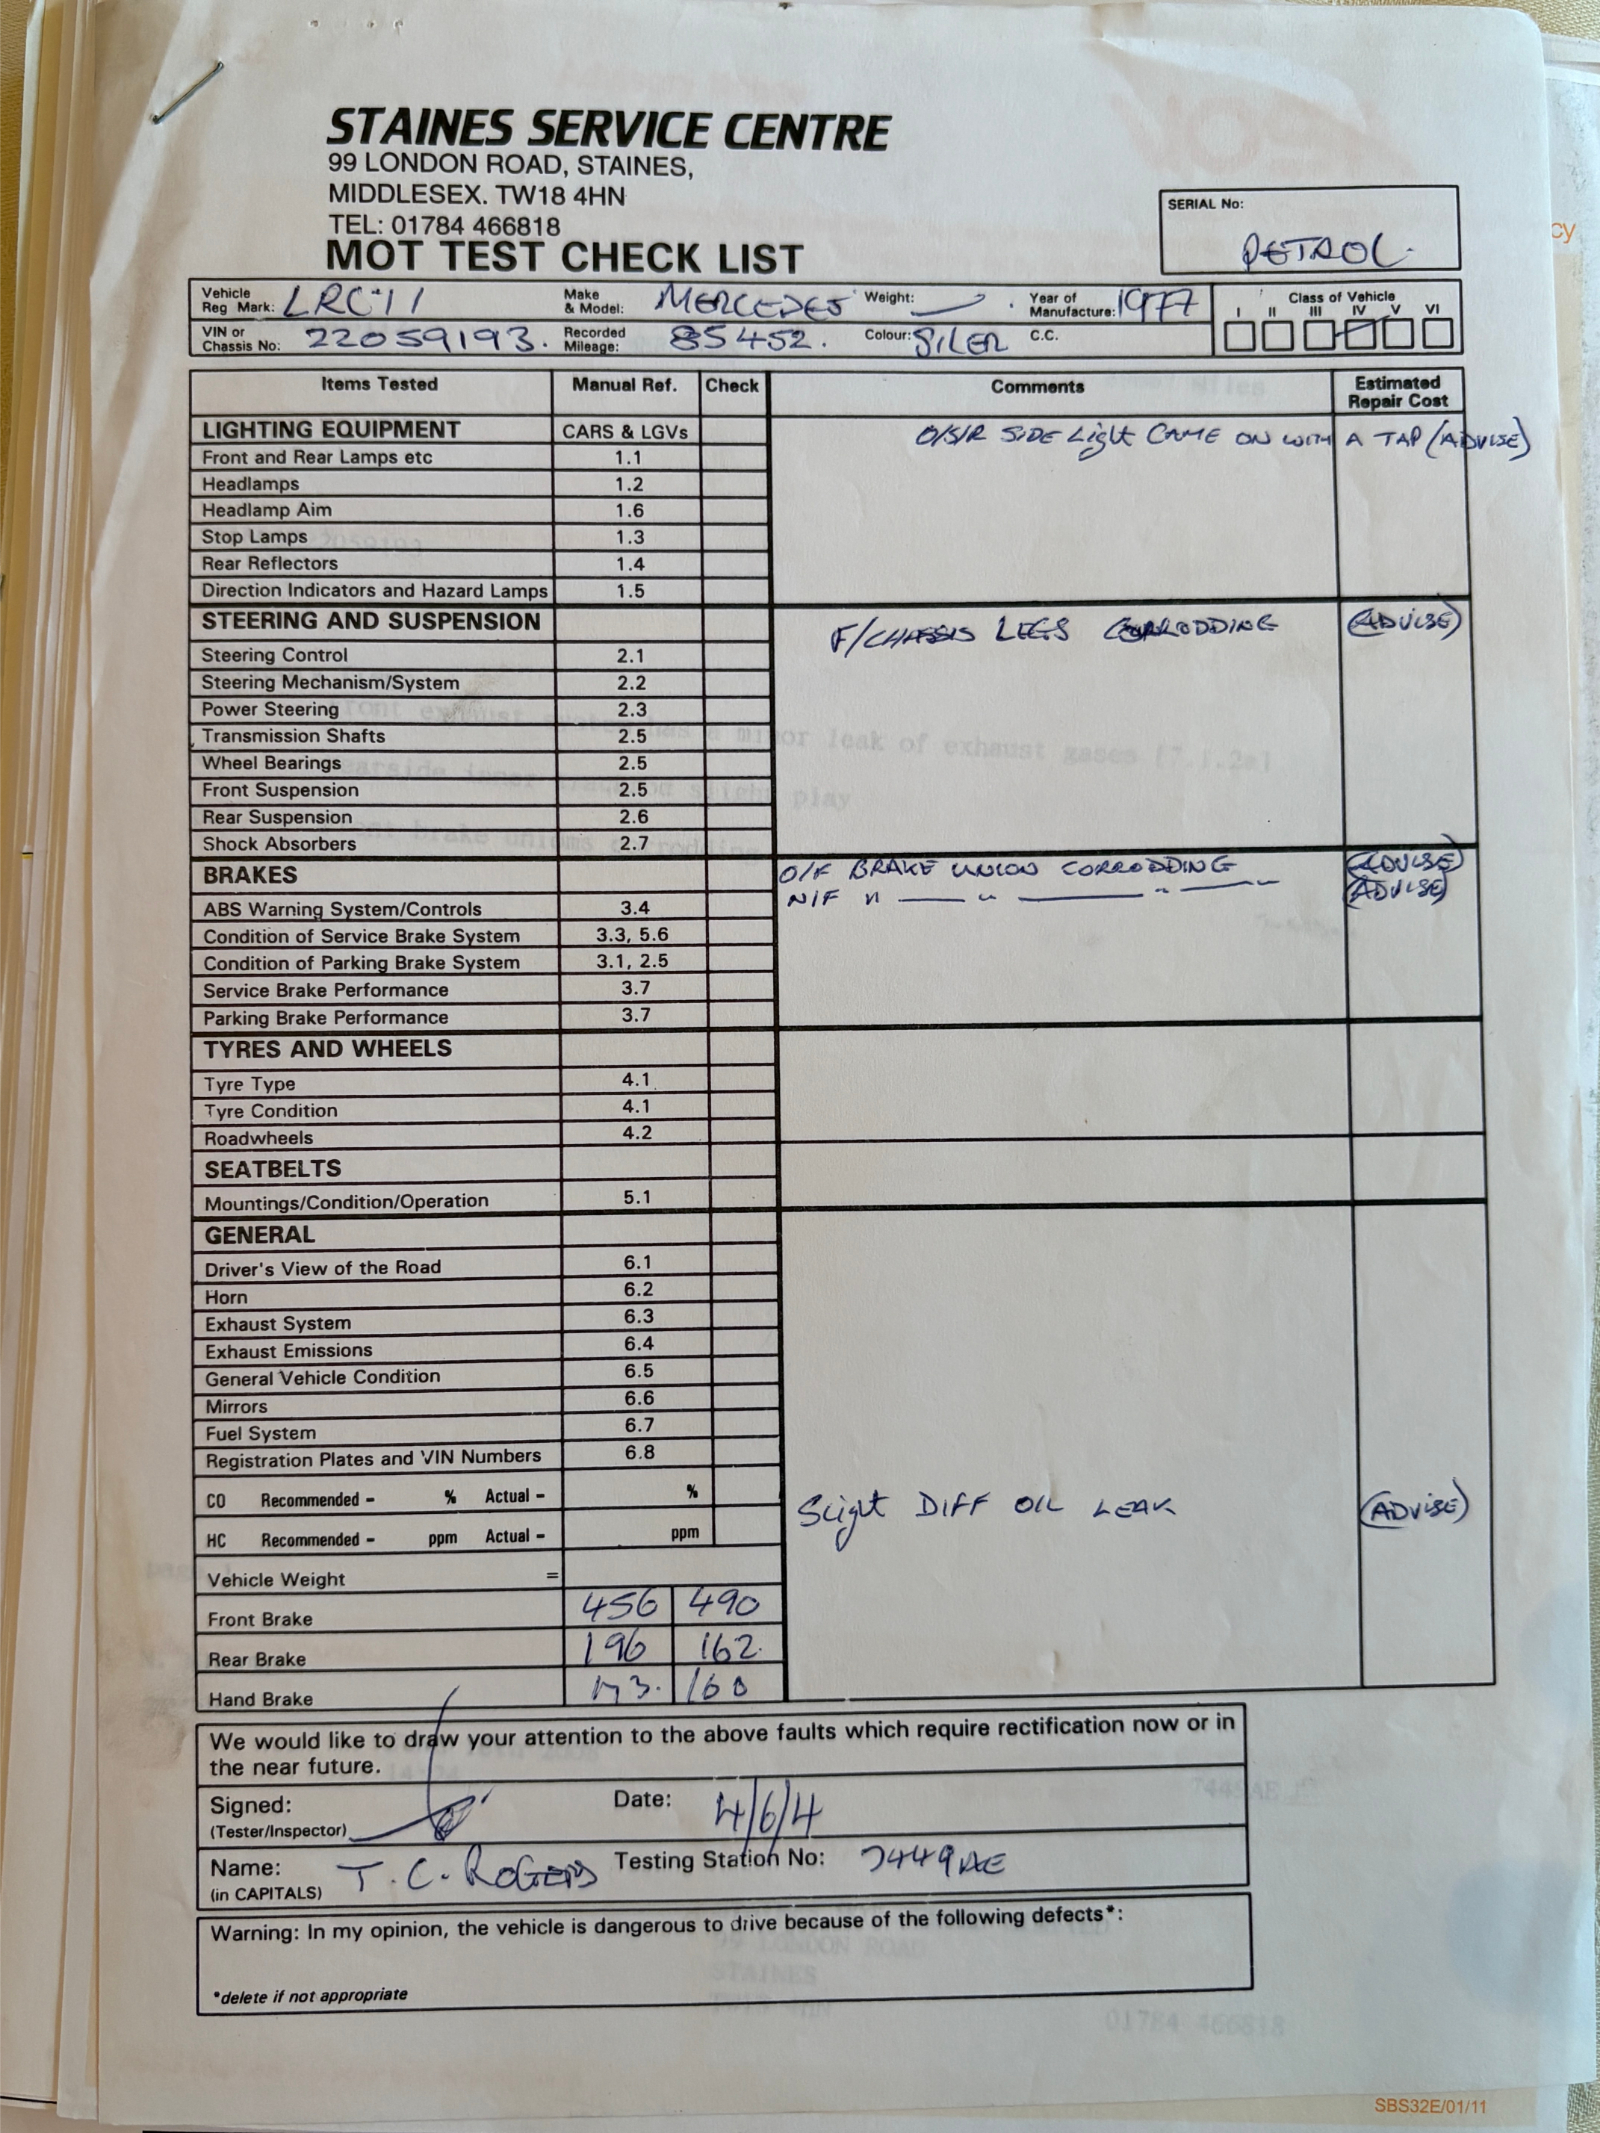 STAINES SERVICE CENTRE
99 LONDON ROAD, STAINES,
MIDDLESEX. TW18 4HN
TEL: 01784 466818
MOT TEST CHECK LIST
SERIAL No:
PETROL.
cy
Vehicle Reg Mark: LRC 11 Make & Model: MERCEDES Weight: — . Year of Manufacture: 1977 Class of Vehicle
I II III IV V VI
VIN or Chassis No: 22059193. Recorded Mileage: 85452. Colour: SILER C.C.
Items Tested Manual Ref. Check Comments Estimated Repair Cost
LIGHTING EQUIPMENT CARS & LGVs O/S/R SIDE Light CAME ON WITH A TAP (ADVISE)
Front and Rear Lamps etc 1.1
Headlamps 1.2
Headlamp Aim 1.6
Stop Lamps 1.3
Rear Reflectors 1.4
Direction Indicators and Hazard Lamps 1.5
STEERING AND SUSPENSION F/CHASSIS LEGS CORRODDING (ADVISE)
Steering Control 2.1
Steering Mechanism/System 2.2
Power Steering 2.3
Transmission Shafts 2.5
Wheel Bearings 2.5
Front Suspension 2.5
Rear Suspension 2.6
Shock Absorbers 2.7
BRAKES O/F BRAKE UNION CORRODDING (ADVISE)
N/F " — " — " — (ADVISE)
ABS Warning System/Controls 3.4
Condition of Service Brake System 3.3, 5.6
Condition of Parking Brake System 3.1, 2.5
Service Brake Performance 3.7
Parking Brake Performance 3.7
TYRES AND WHEELS
Tyre Type 4.1
Tyre Condition 4.1
Roadwheels 4.2
SEATBELTS
Mountings/Condition/Operation 5.1
GENERAL
Driver's View of the Road 6.1
Horn 6.2
Exhaust System 6.3
Exhaust Emissions 6.4
General Vehicle Condition 6.5
Mirrors 6.6
Fuel System 6.7
Registration Plates and VIN Numbers 6.8
CO Recommended – % Actual – % Slight DIFF OIL LEAK (ADVISE)
HC Recommended – ppm Actual – ppm
Vehicle Weight =
Front Brake 456 490
Rear Brake 196 162.
Hand Brake 173. 160
We would like to draw your attention to the above faults which require rectification now or in
the near future.
Signed: Date: 4/6/4
(Tester/Inspector)
Name: T. C. ROGERS Testing Station No: 7449AE
(in CAPITALS)
Warning: In my opinion, the vehicle is dangerous to drive because of the following defects*:
*delete if not appropriate
SBS32E/01/11